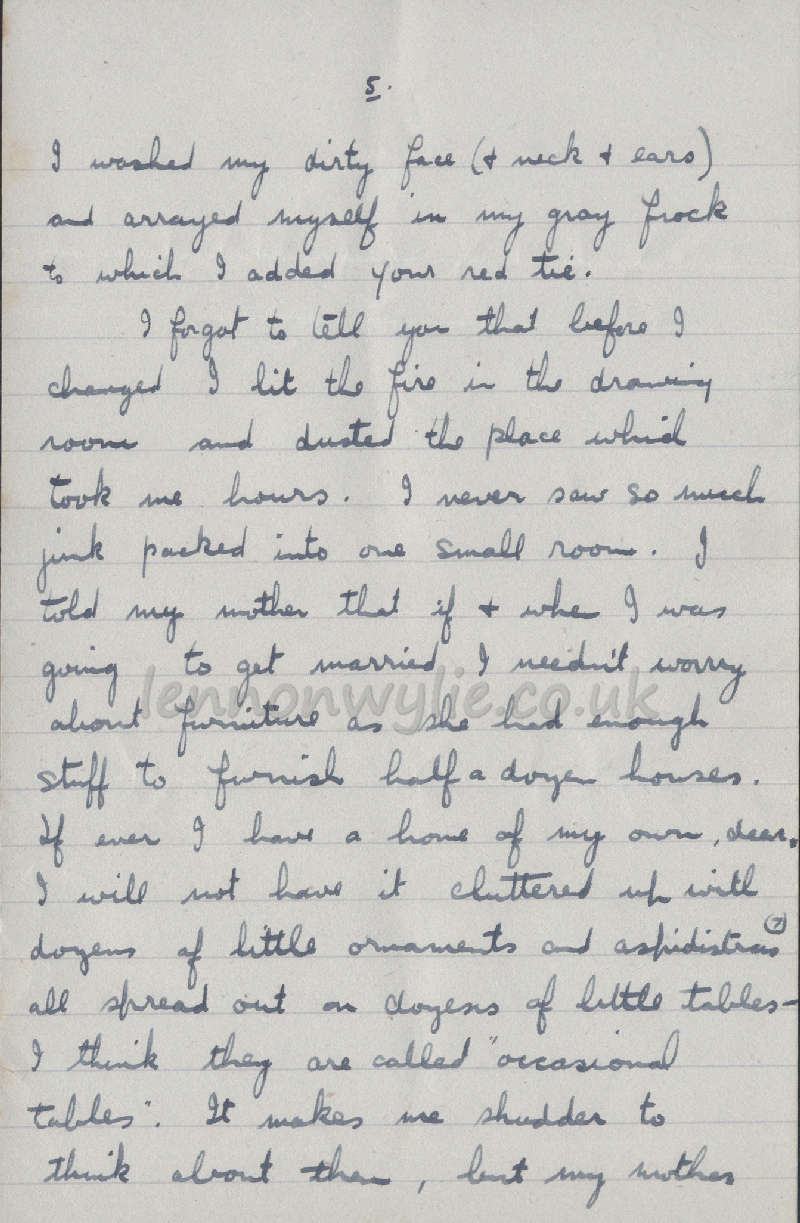 5.
I washed my dirty face (& neck & ears)
and arrayed myself in my gray frock
to which I added your red tie.
I forgot to tell you that before I
changed I lit the fire in the drawing
room and dusted the place which
took me hours. I never saw so much
junk packed into one small room. I
told my mother that if & when I was
going to get married I needn't worry
lennonwylie.co.uk
about furniture as she had enough
stuff to furnish half a dozen houses.
If ever I have a home of my own, dear,
I will not have it cluttered up with
dozens of little ornaments and aspidistras (?)
all spread out on dozens of little tables -
I think they are called "occasional
tables". It makes me shudder to
think about them, but my mother